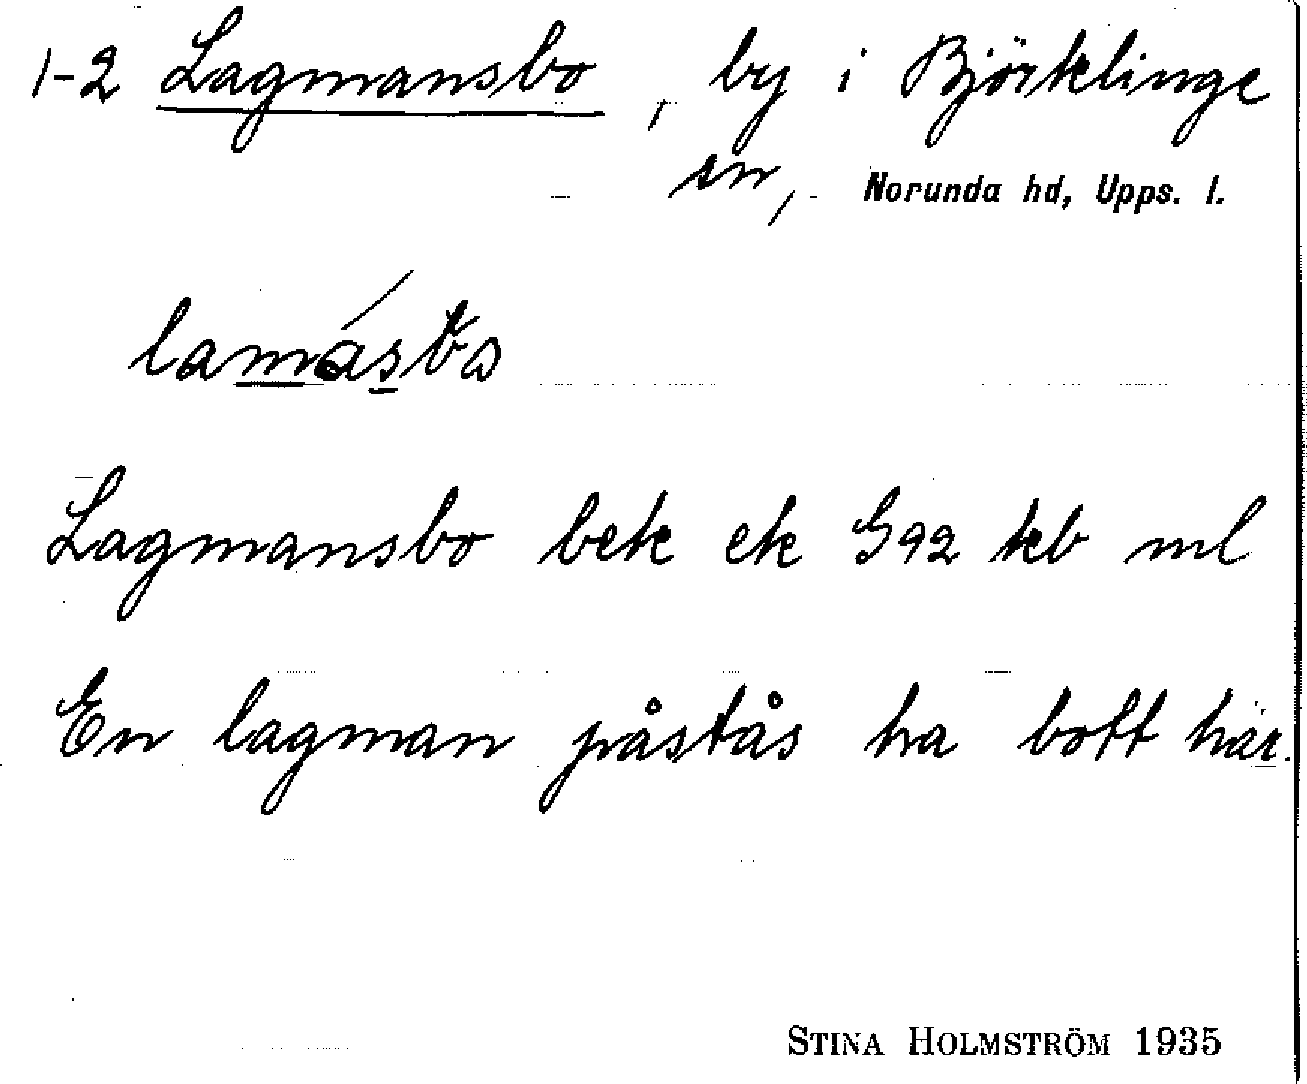 1-2 Lagmansbo, by i Björklinge
sn, Norunda hd, Upps. l.
Lagmansbo bek ek G92 kb ml
En lagman påstås ha bott här.
STINA HOLMSTRÖM 1935